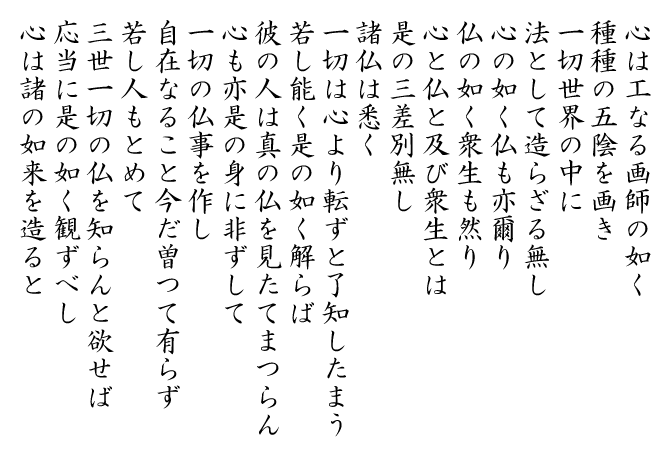 心は工なる画師の如く
種種の五陰を画き
一切世界の中に
法として造らざる無し
心の如く仏も亦爾り
仏の如く衆生も然り
心と仏と及び衆生とは
是の三差別無し
諸仏は悉く
一切は心より転ずと了知したまう
若し能く是の如く解らば
彼の人は真の仏を見たてまつらん
心も亦是の身に非ずして
一切の仏事を作し
自在なること今だ曽つて有らず
若し人もとめて
三世一切の仏を知らんと欲せば
応当に是の如く観ずべし
心は諸の如来を造ると